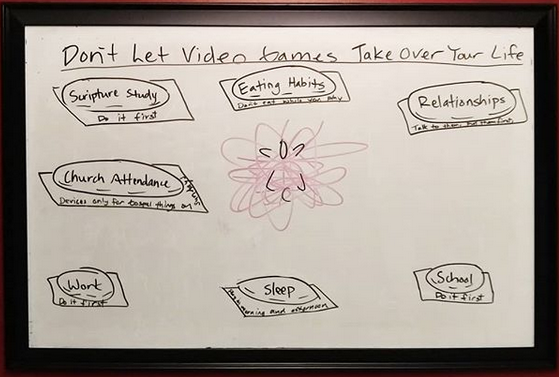 Don't Let Video Games Take Over Your Life
Scripture Study
Do it first
Eating Habits
Don't eat while you play
Relationships
Talk to them, put them first
Church Attendance
Devices only for Gospel things on
Work
Do it first
Sleep
morning and afternoon
School
Do it first